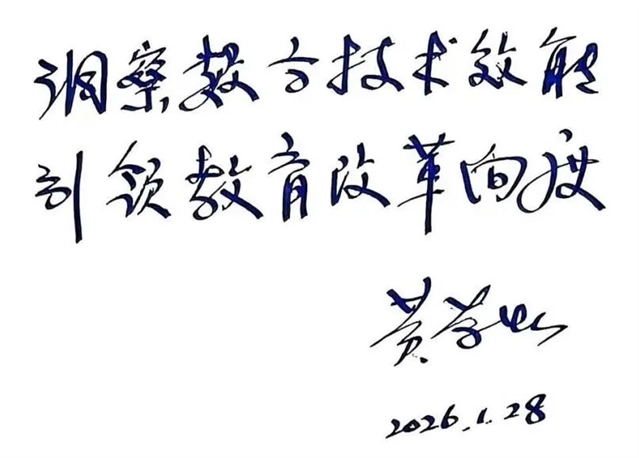 洞察数字技术效能
引领教育改革向度
黄
2026.1.28